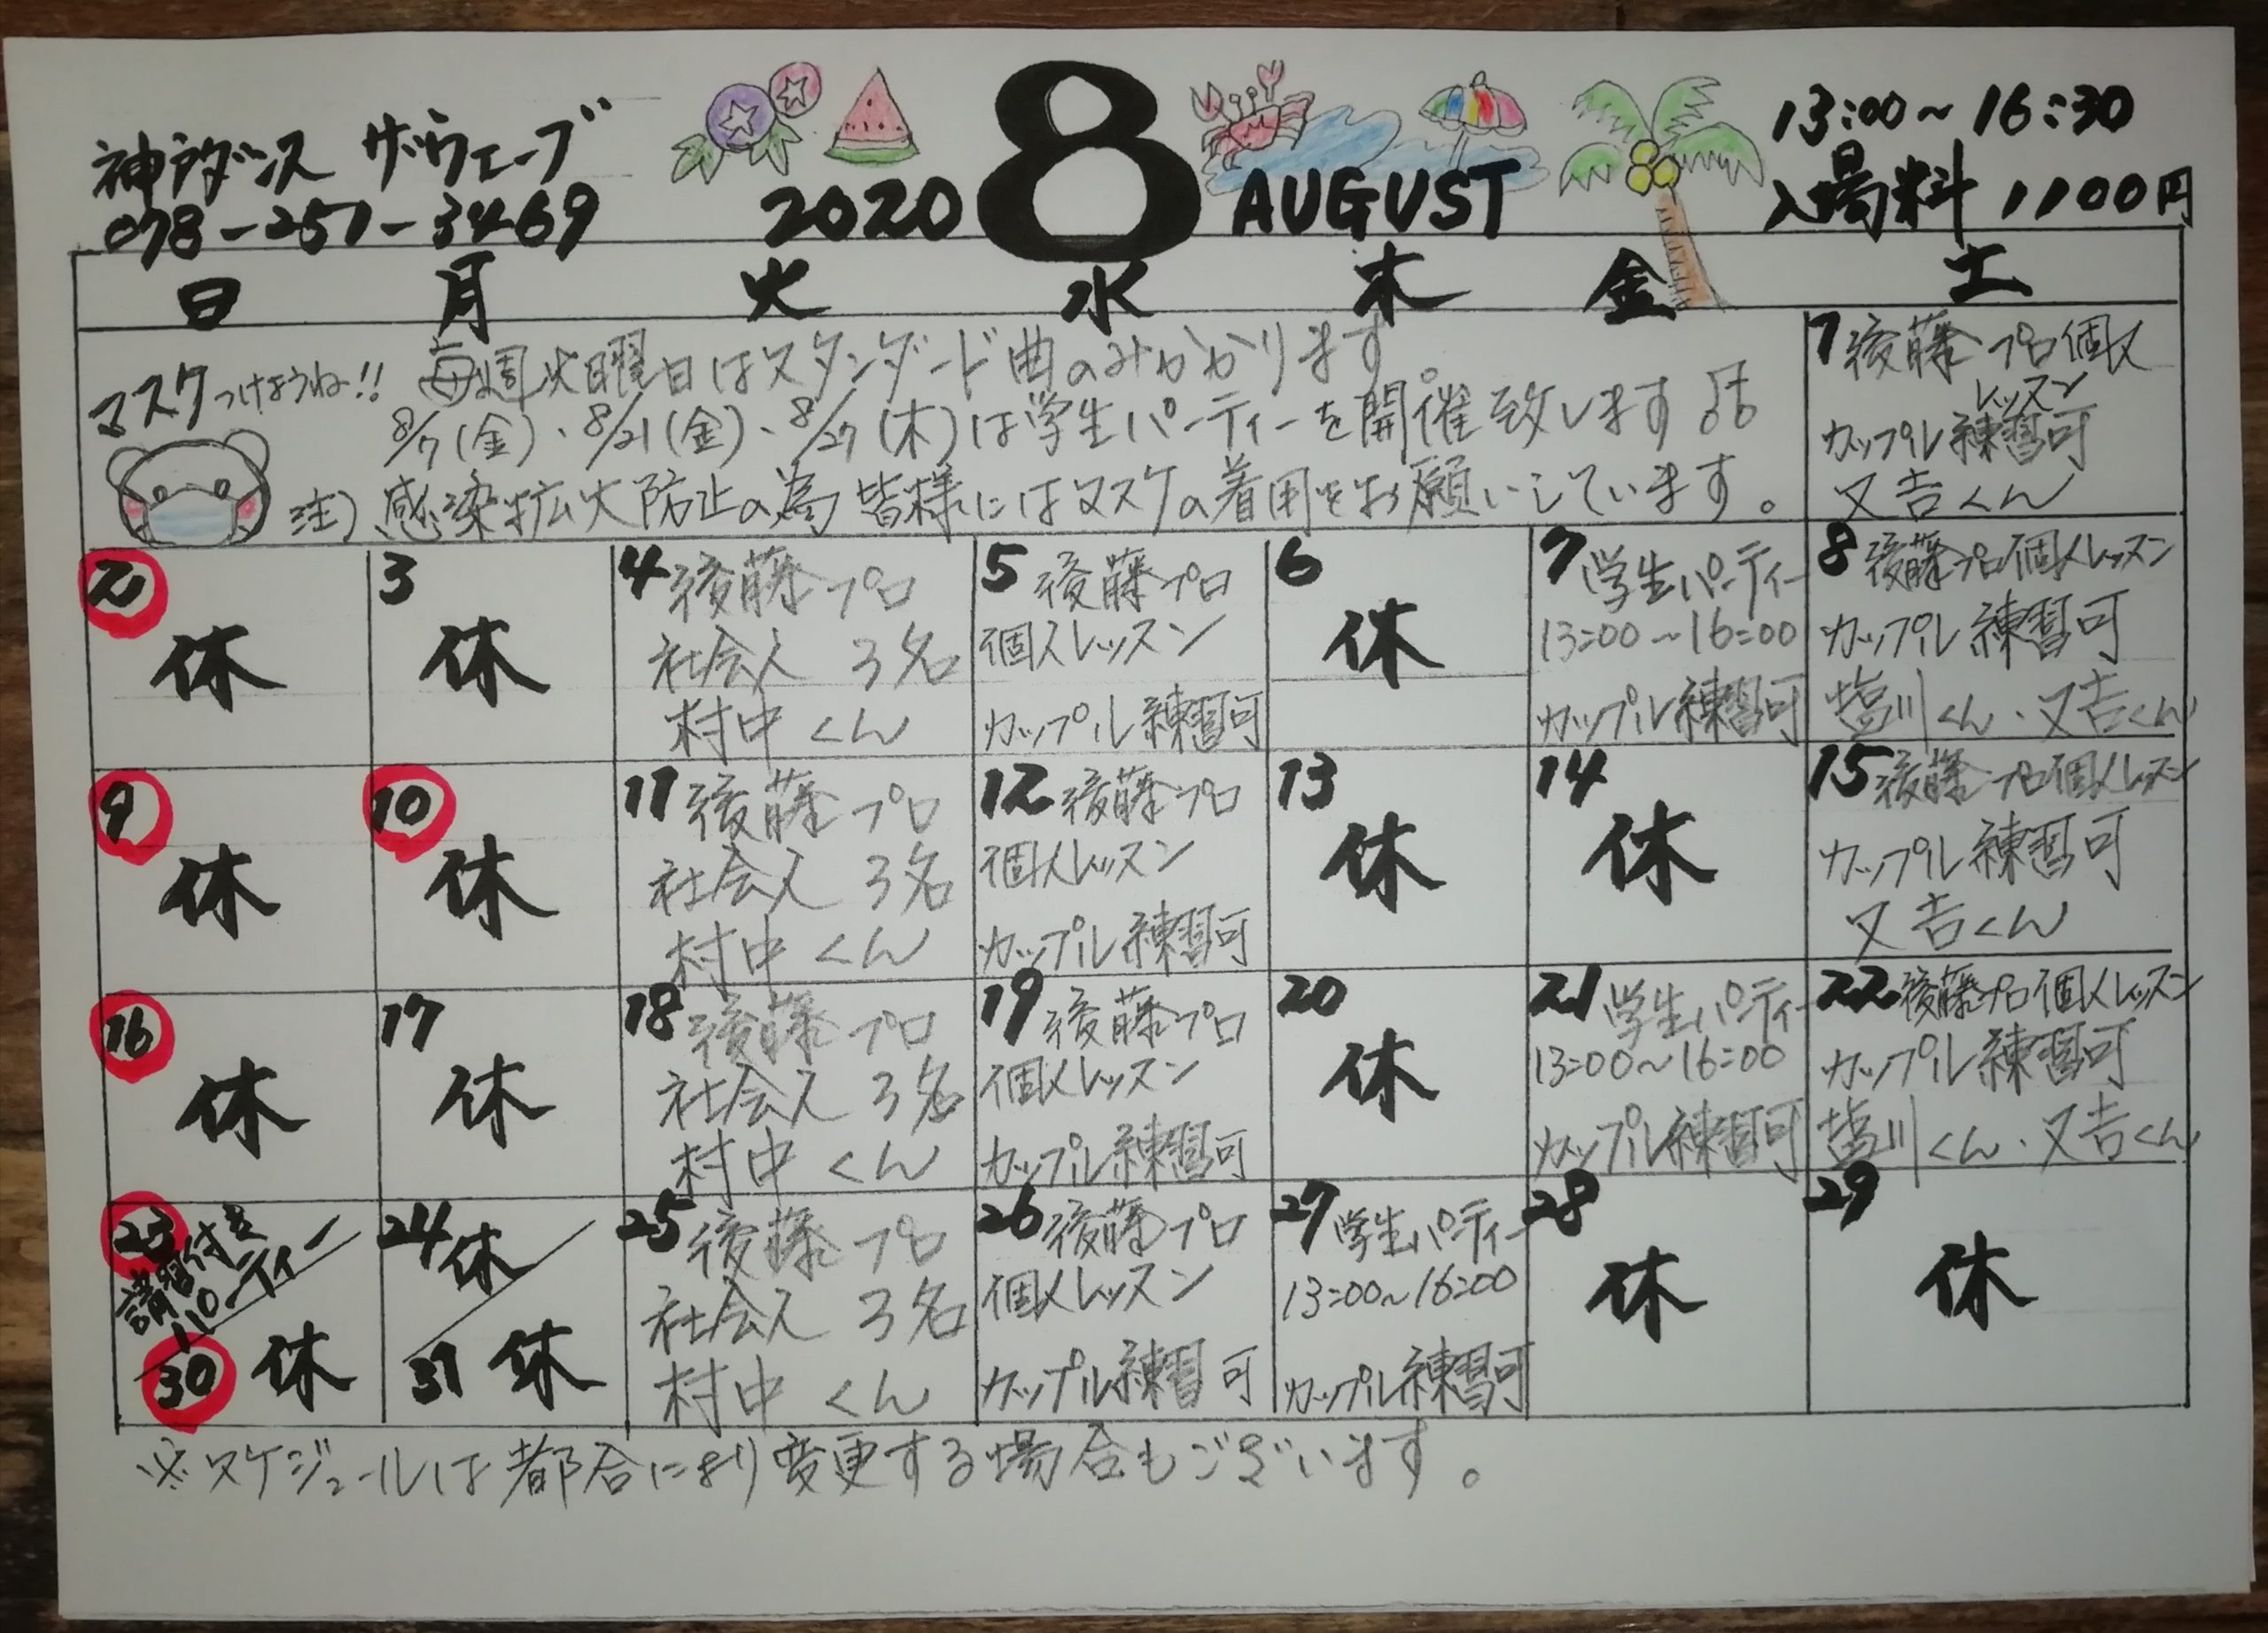 神戸ダンス ザ・ウェーブ
078-251-3469
2020 8 AUGUST
13:00~16:30
入場料 1100円
日 月 火 水 木 金 土
マスクつけようね!!
毎週火曜日はスタンダード曲のみかかります。
8/7(金)、8/21(金)、8/27(木)は学生パーティーを開催致します
注)感染拡大防止の為皆様にはマスクの着用をお願いしています。
1 後藤プロ個人
レッスン
カップル練習可
又吉くん
2
休
3
休
4 後藤プロ
社会人 3名
村中くん
5 後藤プロ
個人レッスン
カップル練習可
6
休
7 学生パーティー
13:00~16:00
カップル練習可
8 後藤プロ個人レッスン
カップル練習可
塩川くん・又吉くん
9
休
10
休
11 後藤プロ
社会人 3名
村中くん
12 後藤プロ
個人レッスン
カップル練習可
13
休
14
休
15 後藤プロ個人レッスン
カップル練習可
又吉くん
16
休
17
休
18 後藤プロ
社会人 3名
村中くん
19 後藤プロ
個人レッスン
カップル練習可
20
休
21 学生パーティー
13:00~16:00
カップル練習可
22 後藤プロ個人レッスン
カップル練習可
塩川くん・又吉くん
23
講習付き
パーティー
30 休
24 休
31 休
25 後藤プロ
社会人 3名
村中くん
26 後藤プロ
個人レッスン
カップル練習可
27 学生パーティー
13:00~16:00
カップル練習可
28
休
29
休
※スケジュールは都合により変更する場合もございます。